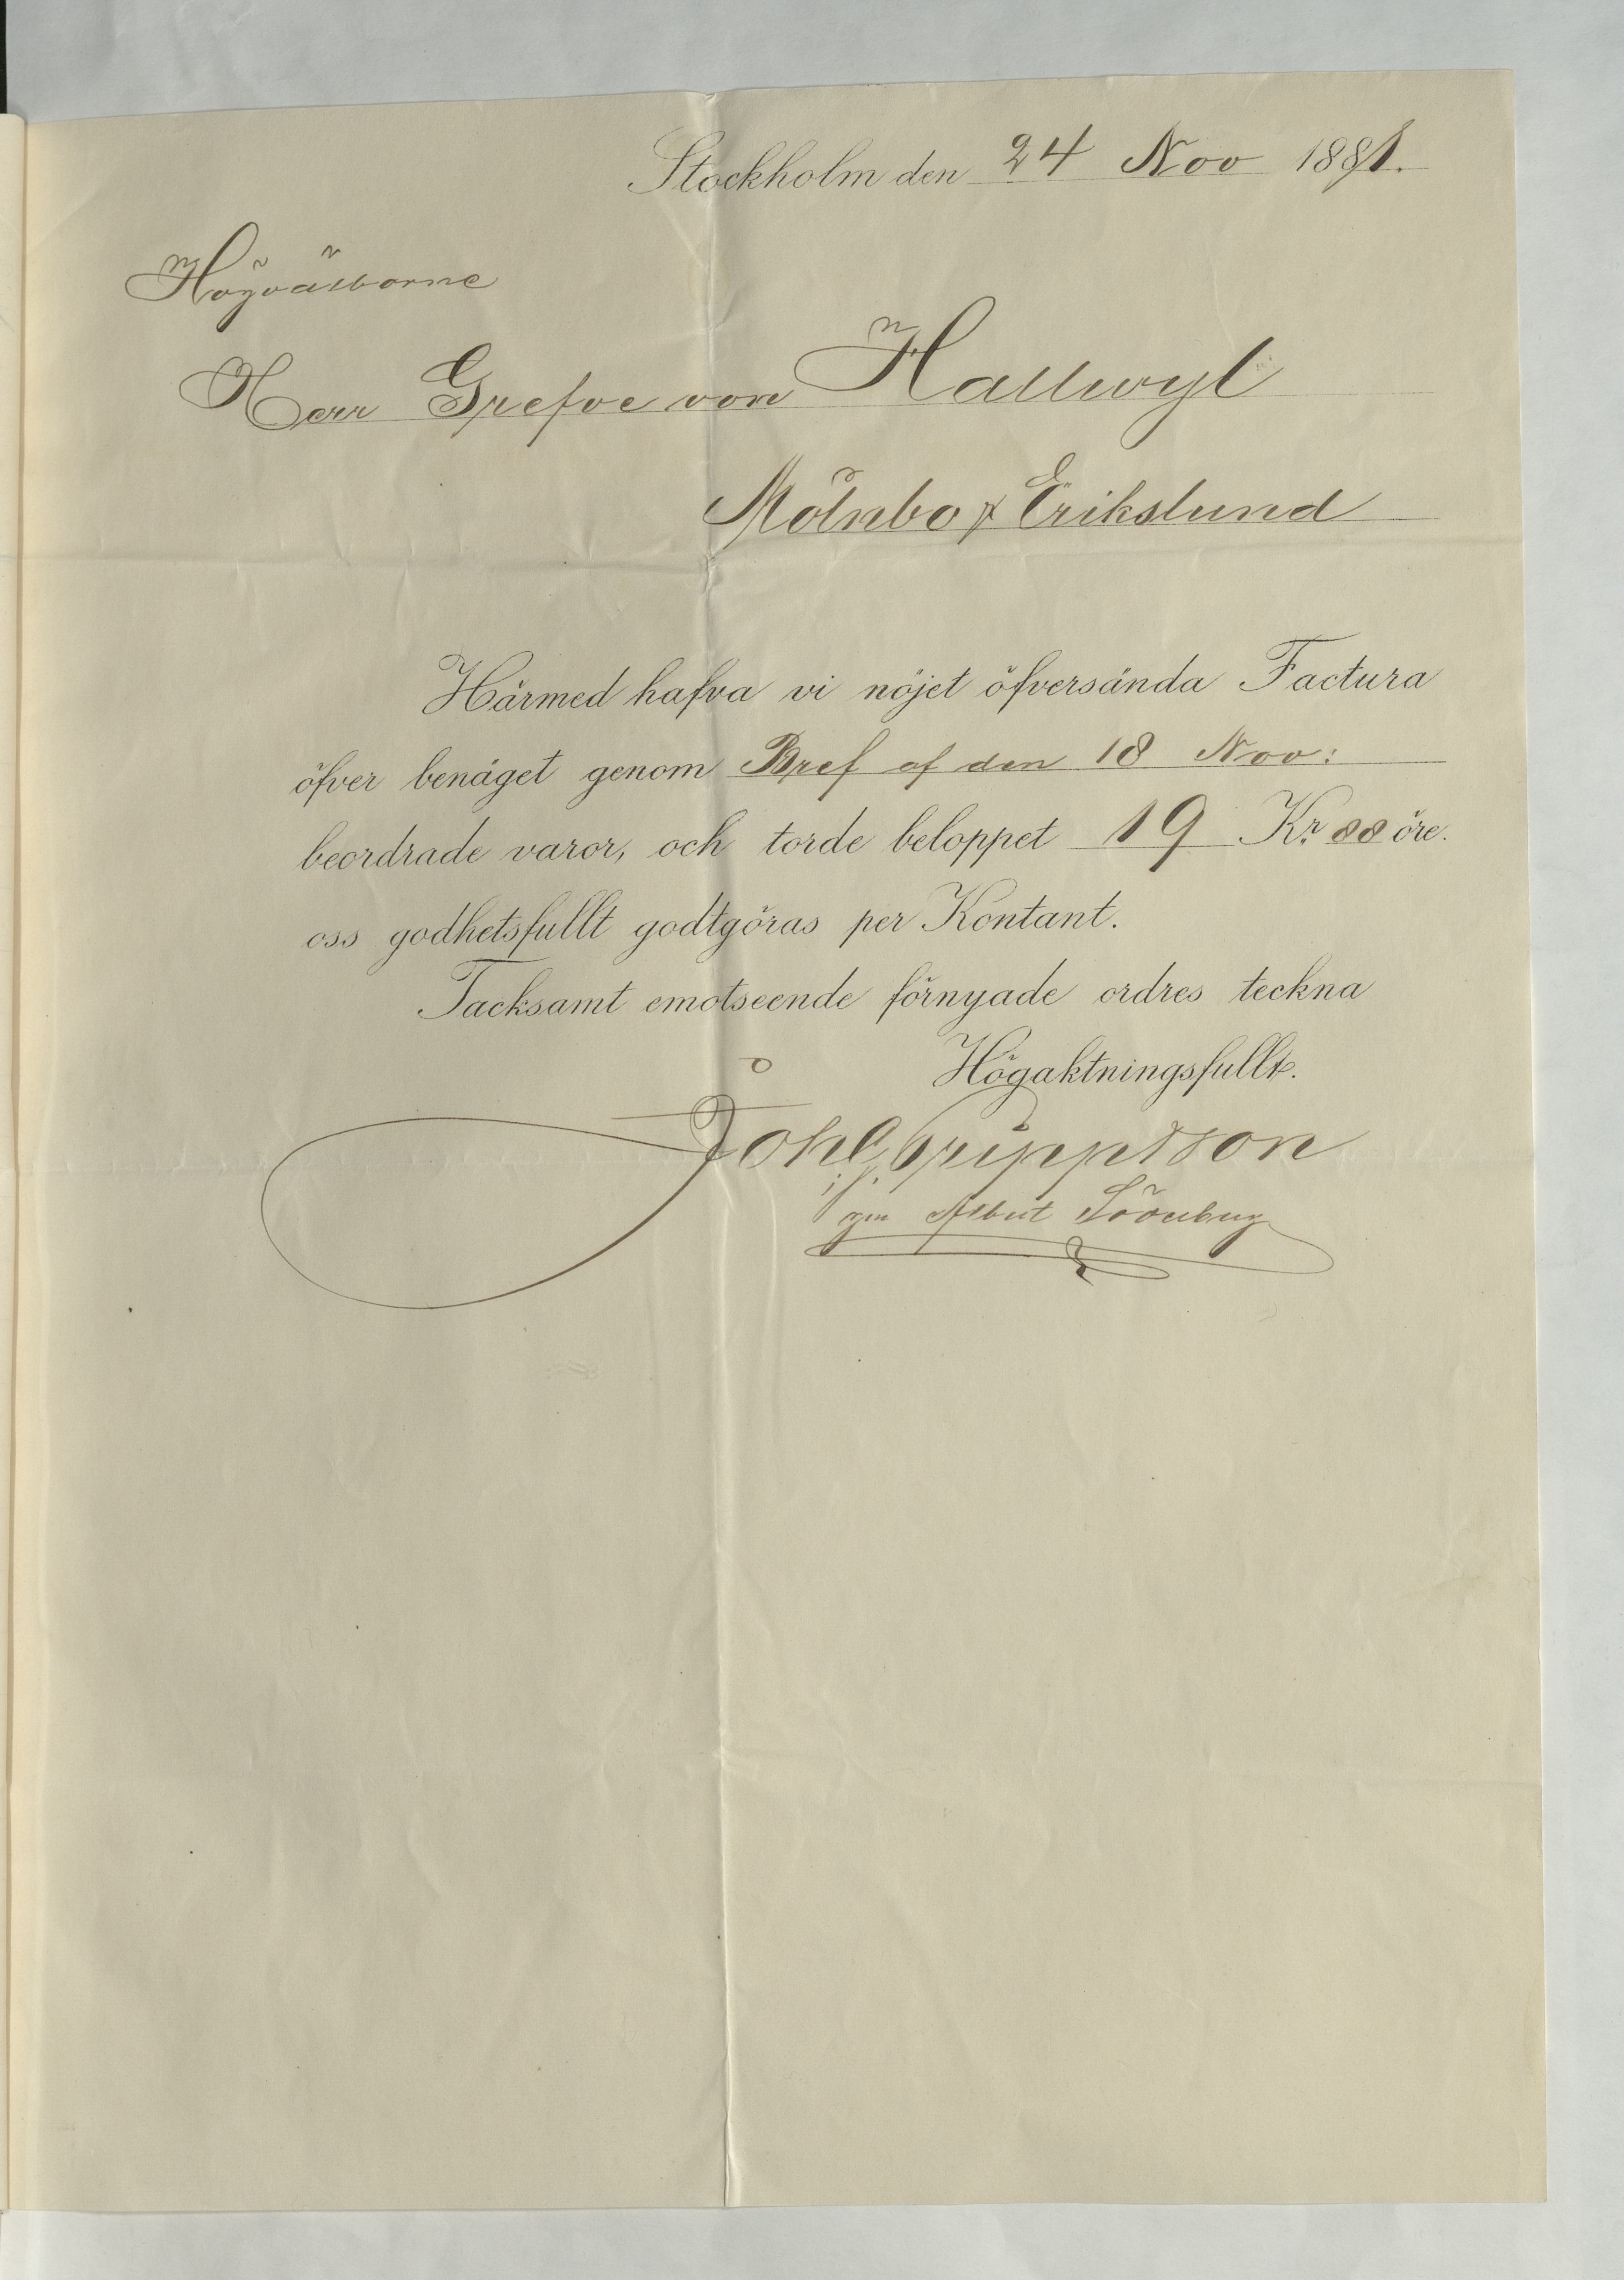 Stockholm den 24 Nov 1881.
Högvälborne
Herr Grefve von Hallwyl
Mölnbo & Erikslund
Härmed hafva vi nöjet öfversända Factura
öfver benäget genom Bref af den 18 Nov:
beordrade varor, och torde beloppet 19 Kr. 88 öre.
oss godhetsfullt godtgöras per Kontant.
Tacksamt emotseende förnyade ordres teckna
Högaktningsfullt.
gm Albert